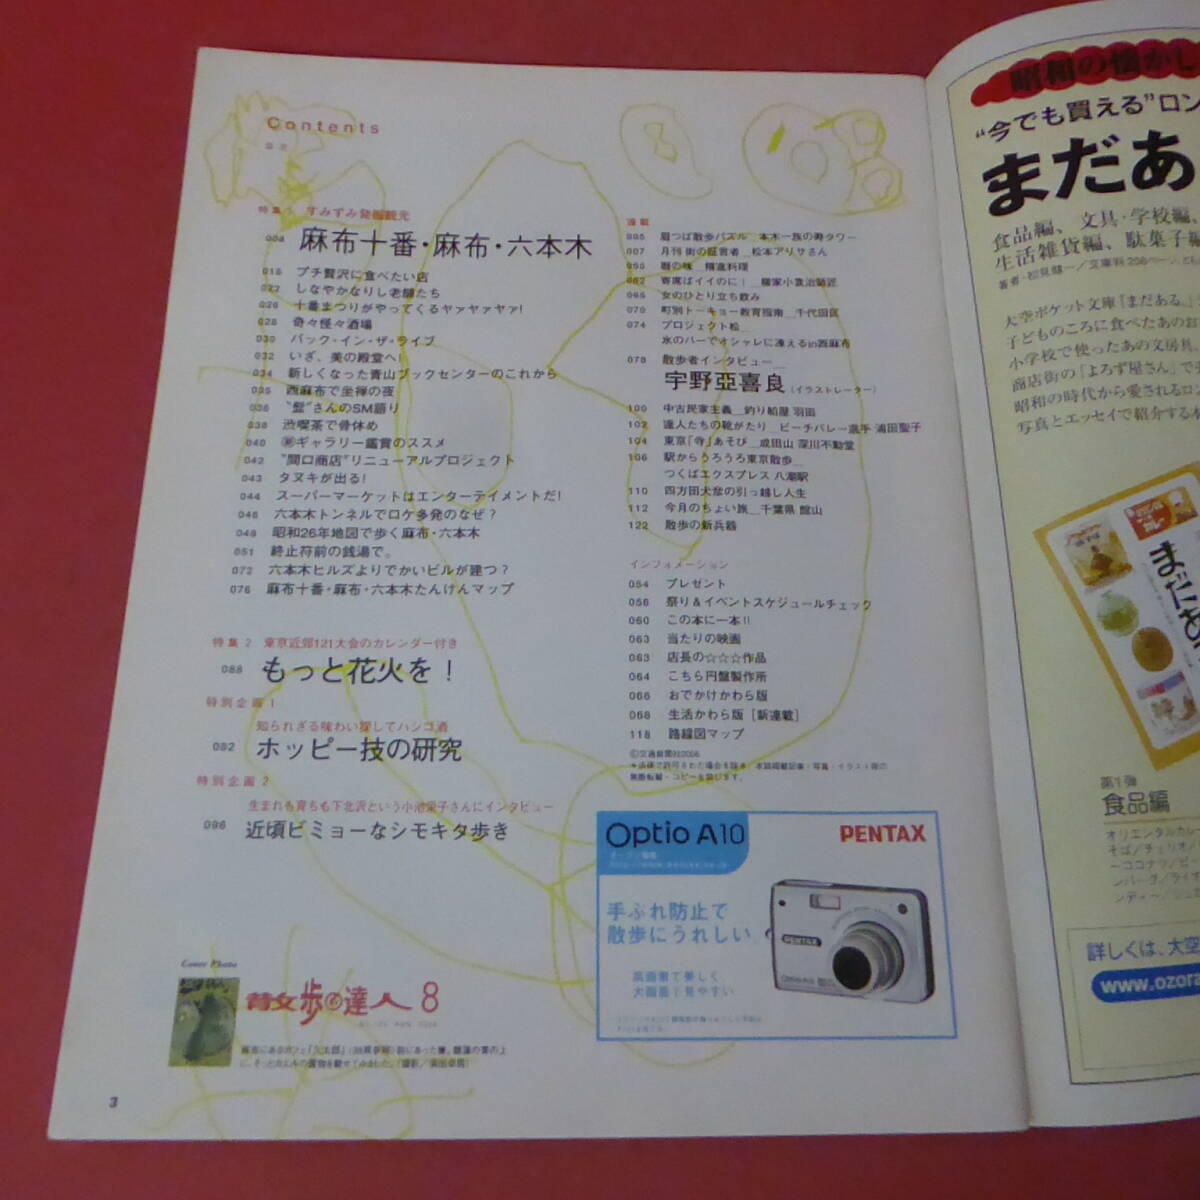 Contents
目次
特集1 すみずみ発掘観光
008 麻布十番・麻布・六本木
018 プチ贅沢に食べたい店
022 しなやかなりし老舗たち
026 十番まつりがやってくるヤァヤァヤァ!
028 奇々怪々酒場
030 バック・イン・ザ・ライブ
032 いざ、美の殿堂へ!
034 新しくなった青山ブックセンターのこれから
035 西麻布で坐禅の夜
036 "髭"さんのSM語り
038 渋喫茶で骨休め
040 ㊙ギャラリー鑑賞のススメ
042 "間口商店"リニューアルプロジェクト
043 タヌキが出る!
044 スーパーマーケットはエンターテイメントだ!
046 六本木トンネルでロケ多発のなぜ?
048 昭和26年地図で歩く麻布・六本木
051 終止符前の銭湯で。
072 六本木ヒルズよりでかいビルが建つ?
076 麻布十番・麻布・六本木たんけんマップ
特集2 東京近郊121大会のカレンダー付き
088 もっと花火を!
特別企画1
知られざる味わい探してハシゴ酒
082 ホッピー技の研究
特別企画2
生まれも育ちも下北沢という小池栄子さんにインタビュー
096 近頃ビミョーなシモキタ歩き
Cover Photo
散歩の達人 8
3
連載
005 眉つば散歩パズル__本木一族の寿タワー
007 月刊 街の証言者__松本アリサさん
050 噺の味__精進料理
052 寄席ばイイのに!__柳家小袁治師匠
065 女のひとり立ち飲み
070 町別トーキョー教育指南__千代田区
074 プロジェクト松__
氷のバーでオシャレに凍えるin西麻布
078 散歩者インタビュー__
宇野亞喜良(イラストレーター)
100 中古民家主義__釣り船屋 羽田
102 達人たちの靴がたり__ビーチバレー選手 浦田聖子
104 東京「寺」あそび__成田山 深川不動堂
106 駅からうろうろ東京散歩__
つくばエクスプレス 八潮駅
110 四方田犬彦の引っ越し人生
112 今月のちょい旅__千葉県 館山
122 散歩の新兵器
インフォメーション
054 プレゼント
056 祭り&イベントスケジュールチェック
060 この本に一本!!
063 当たりの映画
063 店長の☆☆☆作品
064 こちら円盤製作所
066 おでかけかわら版
068 生活かわら版[新連載]
118 路線図マップ
©交通新聞社2006
*法律で許可された場合を除き、本誌掲載記事・写真・イラスト等の
無断転載・コピーを禁じます。
Optio A10
PENTAX
手ぶれ防止で
散歩にうれしい。
高画質で美しく
大画面で見やすい
PENTAX
昭和の懐かし
"今でも買える"ロン
まだあ
食品編、文具・学校編、
生活雑貨編、駄菓子編
大空ポケット文庫「まだある。」
子どものころに食べたあのお
小学校で使ったあの文房具、
商店街の「よろず屋さん」で
昭和の時代から愛されるロ
写真とエッセイで紹介する本
第1弾
食品編
オリエンタルカレ
そば/チェリオ/
ーココナツ/ビ
ンバーグ/ライ
ンディー/
詳しくは、大空
www.ozora